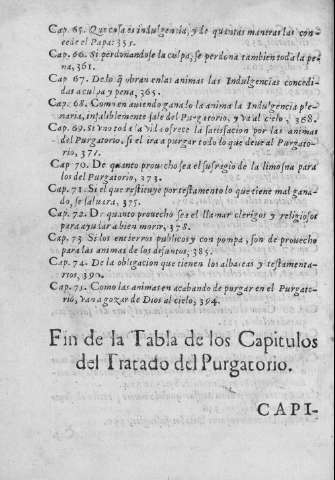 Cap. 65. Que cosa es indulgencia, y de quantas maneras las con-
cede el Papa: 355.
Cap. 66. Si perdonandose la culpa, se perdona tambien toda la pe-
na, 361.
Cap 67. De lo q̃ obran en las animas las Indulgencias concedi-
das a culpa y pena, 365.
Cap. 68. Como en auiendo ganado la anima la Indulgencia ple-
naria, infaliblemente sale del Purgatorio, y va al cielo, 368.
Cap. 69. Si vno toda la vida ofrece la satisfacion por las animas
del Purgatorio, si el ira a purgar todo lo que deue al Purgato-
rio, 371.
Cap 70. De quanto prouecho sea el sufragio de la limosna para
los del Purgatorio, 373.
Cap. 71. Si el que restituye por testamento lo que tiene mal gana-
do, se saluara, 375.
Cap. 72. De quanto prouecho sea el llamar clerigos y religiosos
para ayudar a bien morir, 378.
Cap. 73 Si los entierros publicos y con pompa, son de prouecho
para las animas de los defuntos, 385.
Cap. 74. De la obligacion que tienen los albaceas y testamenta-
rios, 390.
Cap. 75. Como las animas en acabando de purgar en el Purgato-
rio, van a gozar de Dios al cielo, 394.
Fin de la Tabla de los Capitulos
del Tratado del Purgatorio.
CAPI-